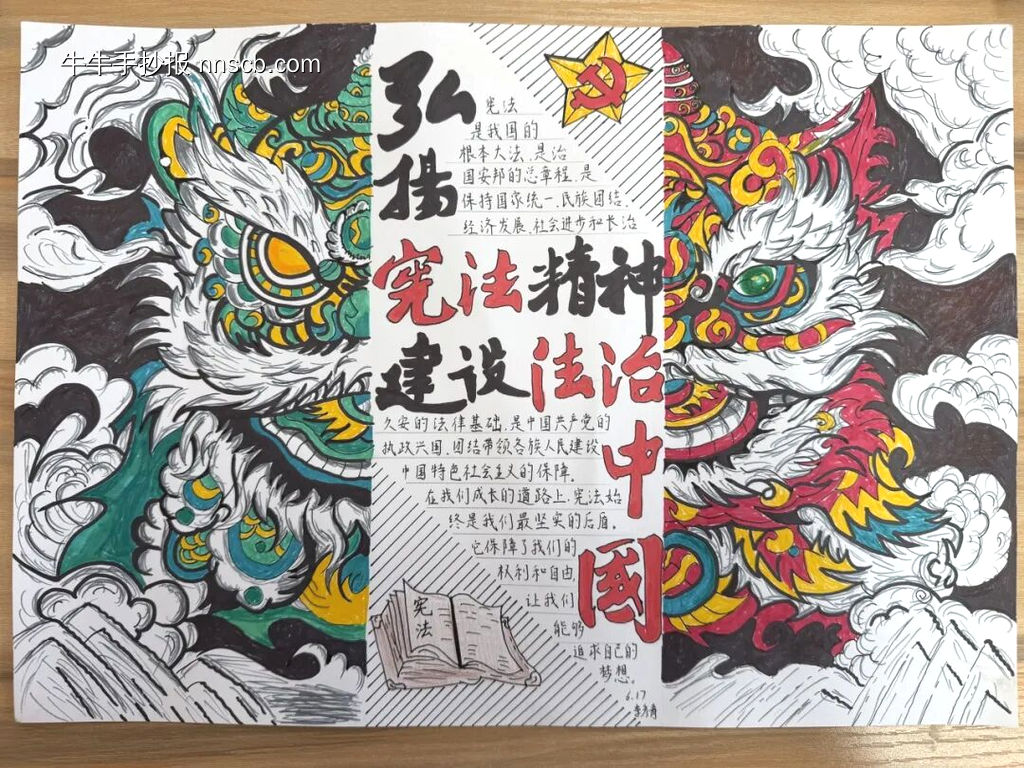 牛牛手抄报 nnscb.com
弘揚
憲法精神
建设法治
中國
宪法
是我国的
根本大法,是治
国安邦的总章程,是
保持国家统一、民族团结、
经济发展、社会进步和长治
久安的法律基础,是中国共产党的
执政兴国、团结带领各族人民建设
中国特色社会主义的保障.
在我们成长的道路上,宪法始
终是我们最坚实的后盾。
它保障了我们的
权利和自由,
让我们
能够
追求自己的
梦想。
宪
法
6.17